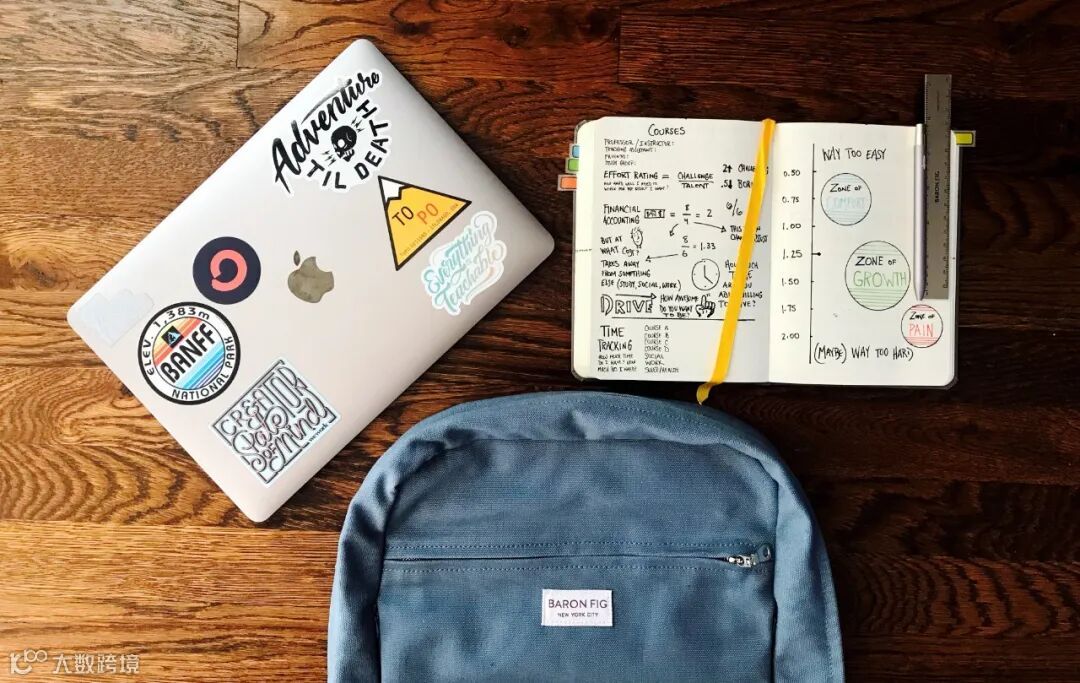 Adventure
'TIL DEATH
TO PO
Everything
Teachable
ELEV. 1,383m
BANFF
NATIONAL PARK
CREATOR
State
of Mind
COURSES
PROFESSOR / INSTRUCTOR:
EFFORT RATING = CHALLENGE
TALENT
FINANCIAL
ACCOUNTING
= 8
4
= 2
BUT AT
WHAT COST?
8
6
= 1.33
TAKES AWAY
FROM SOMETHING
ELSE (STUDY, SOCIAL, WORK)
DRIVE
HOW AWESOME
DO YOU WANT
TO BE?
TIME
TRACKING
COURSE A
COURSE B
COURSE C
COURSE D
SOCIAL
WORK
WAY TOO EASY
0.50
0.75
1.00
1.25
1.50
1.75
2.00
ZONE OF
COMFORT
ZONE OF
GROWTH
ZONE OF
PAIN
(MAYBE) WAY TOO HARD
BARON FIG
BARON FIG
NEW YORK CITY
大数跨境